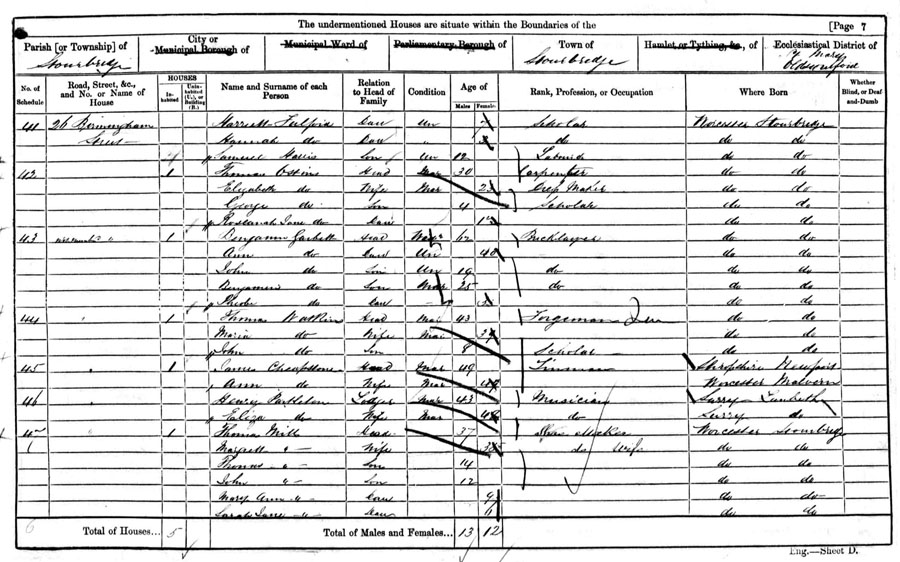 The undermentioned Houses are situate within the Boundaries of the [Page 7
Parish [or Township] of Stourbridge
City or Municipal Borough of
Municipal Ward of
Parliamentary Borough of
Town of Stourbridge
Hamlet or Tything, &c., of
Ecclesiastical District of St Mary Oldswinford
No. of Schedule
Road, Street, &c., and No. or Name of House
HOUSES
Inhabited
Uninhabited (U.), or Building (B.)
Name and Surname of each Person
Relation to Head of Family
Condition
Age of
Males
Females
Rank, Profession, or Occupation
Where Born
Whether Blind, or Deaf-and-Dumb
41 26 Birmingham Harriett Daur Un Scholar Worcester Stourbridge
Street Hannah do Daur " do do do
Samuel Harris Son Un 12 do do
42 1 Thomas Head Mar 30 Carpenter do do
Elizabeth do Wife Mar Maker do do
George do Son 4 Scholar do do
Roseanah Jane do Daur do do
43 " 1 Benjamin Garbett Head 62 Bricklayer do do
Ann do Daur Un 40 do do
John do Son Un 19 do do do
Benjamin do Son Mar 25 do do do
Phoebe do Daur do do
44 " 1 Thomas Watkins Head Mar 43 Forgeman do do
Maria do Wife Mar do do
John do Son 8 Scholar do do
45 " 1 James Head Mar 49 Tinman Shropshire Newport
Ann do Wife Mar Worcester Malvern
46 " Henry Lodger Mar 43 Musician Surry Lambeth
Eliza do Wife Mar do Surry do
" 1 Thomas Mills Head 37 Maker Worcester Stourbridge
Margrett " Wife do Wife do do
Thomas " Son 14 do do
John " Son 12 do do
Mary Ann " Daur 9 do do
Sarah Jane " Daur 6 do do
6 Total of Houses... 5 Total of Males and Females... 13 12
Eng.—Sheet D.